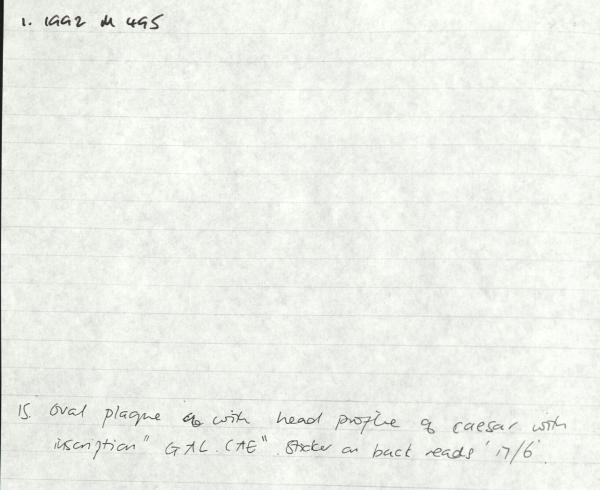 1. 1992 M 495
15. Oval plaque with head profile of caesar with
inscription " GAL. CAE". Sticker on back reads ' 17/6'.